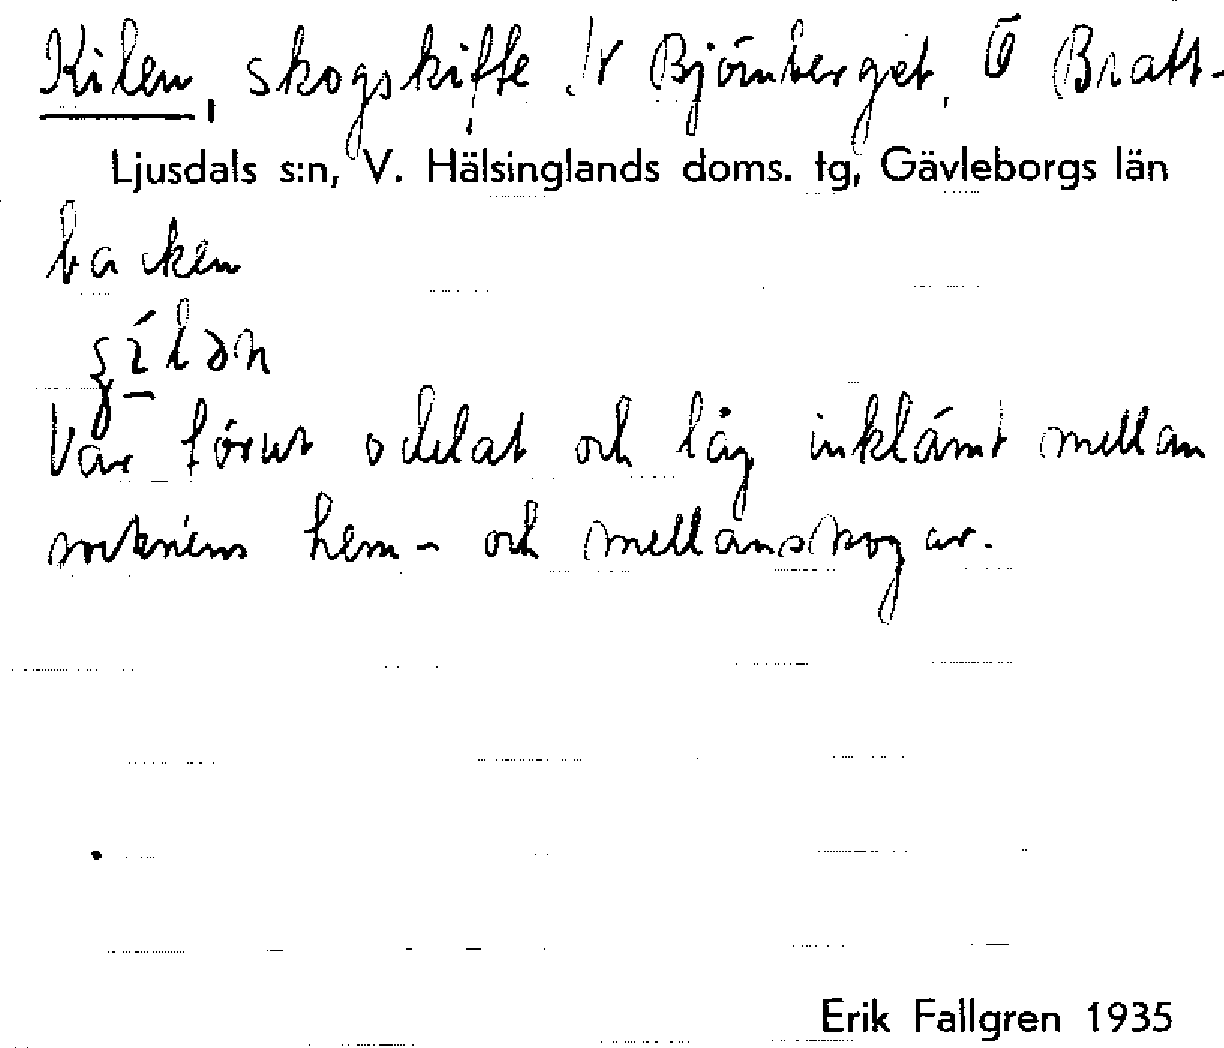 Kilen, skogskifte. V Björnberget, Ö Bratt-
Ljusdals s:n, V. Hälsinglands doms. tg, Gävleborgs län
backen
Var förut odelat och låg inklämt mellan
socknens hem- och mellanskogar.
Erik Fallgren 1935